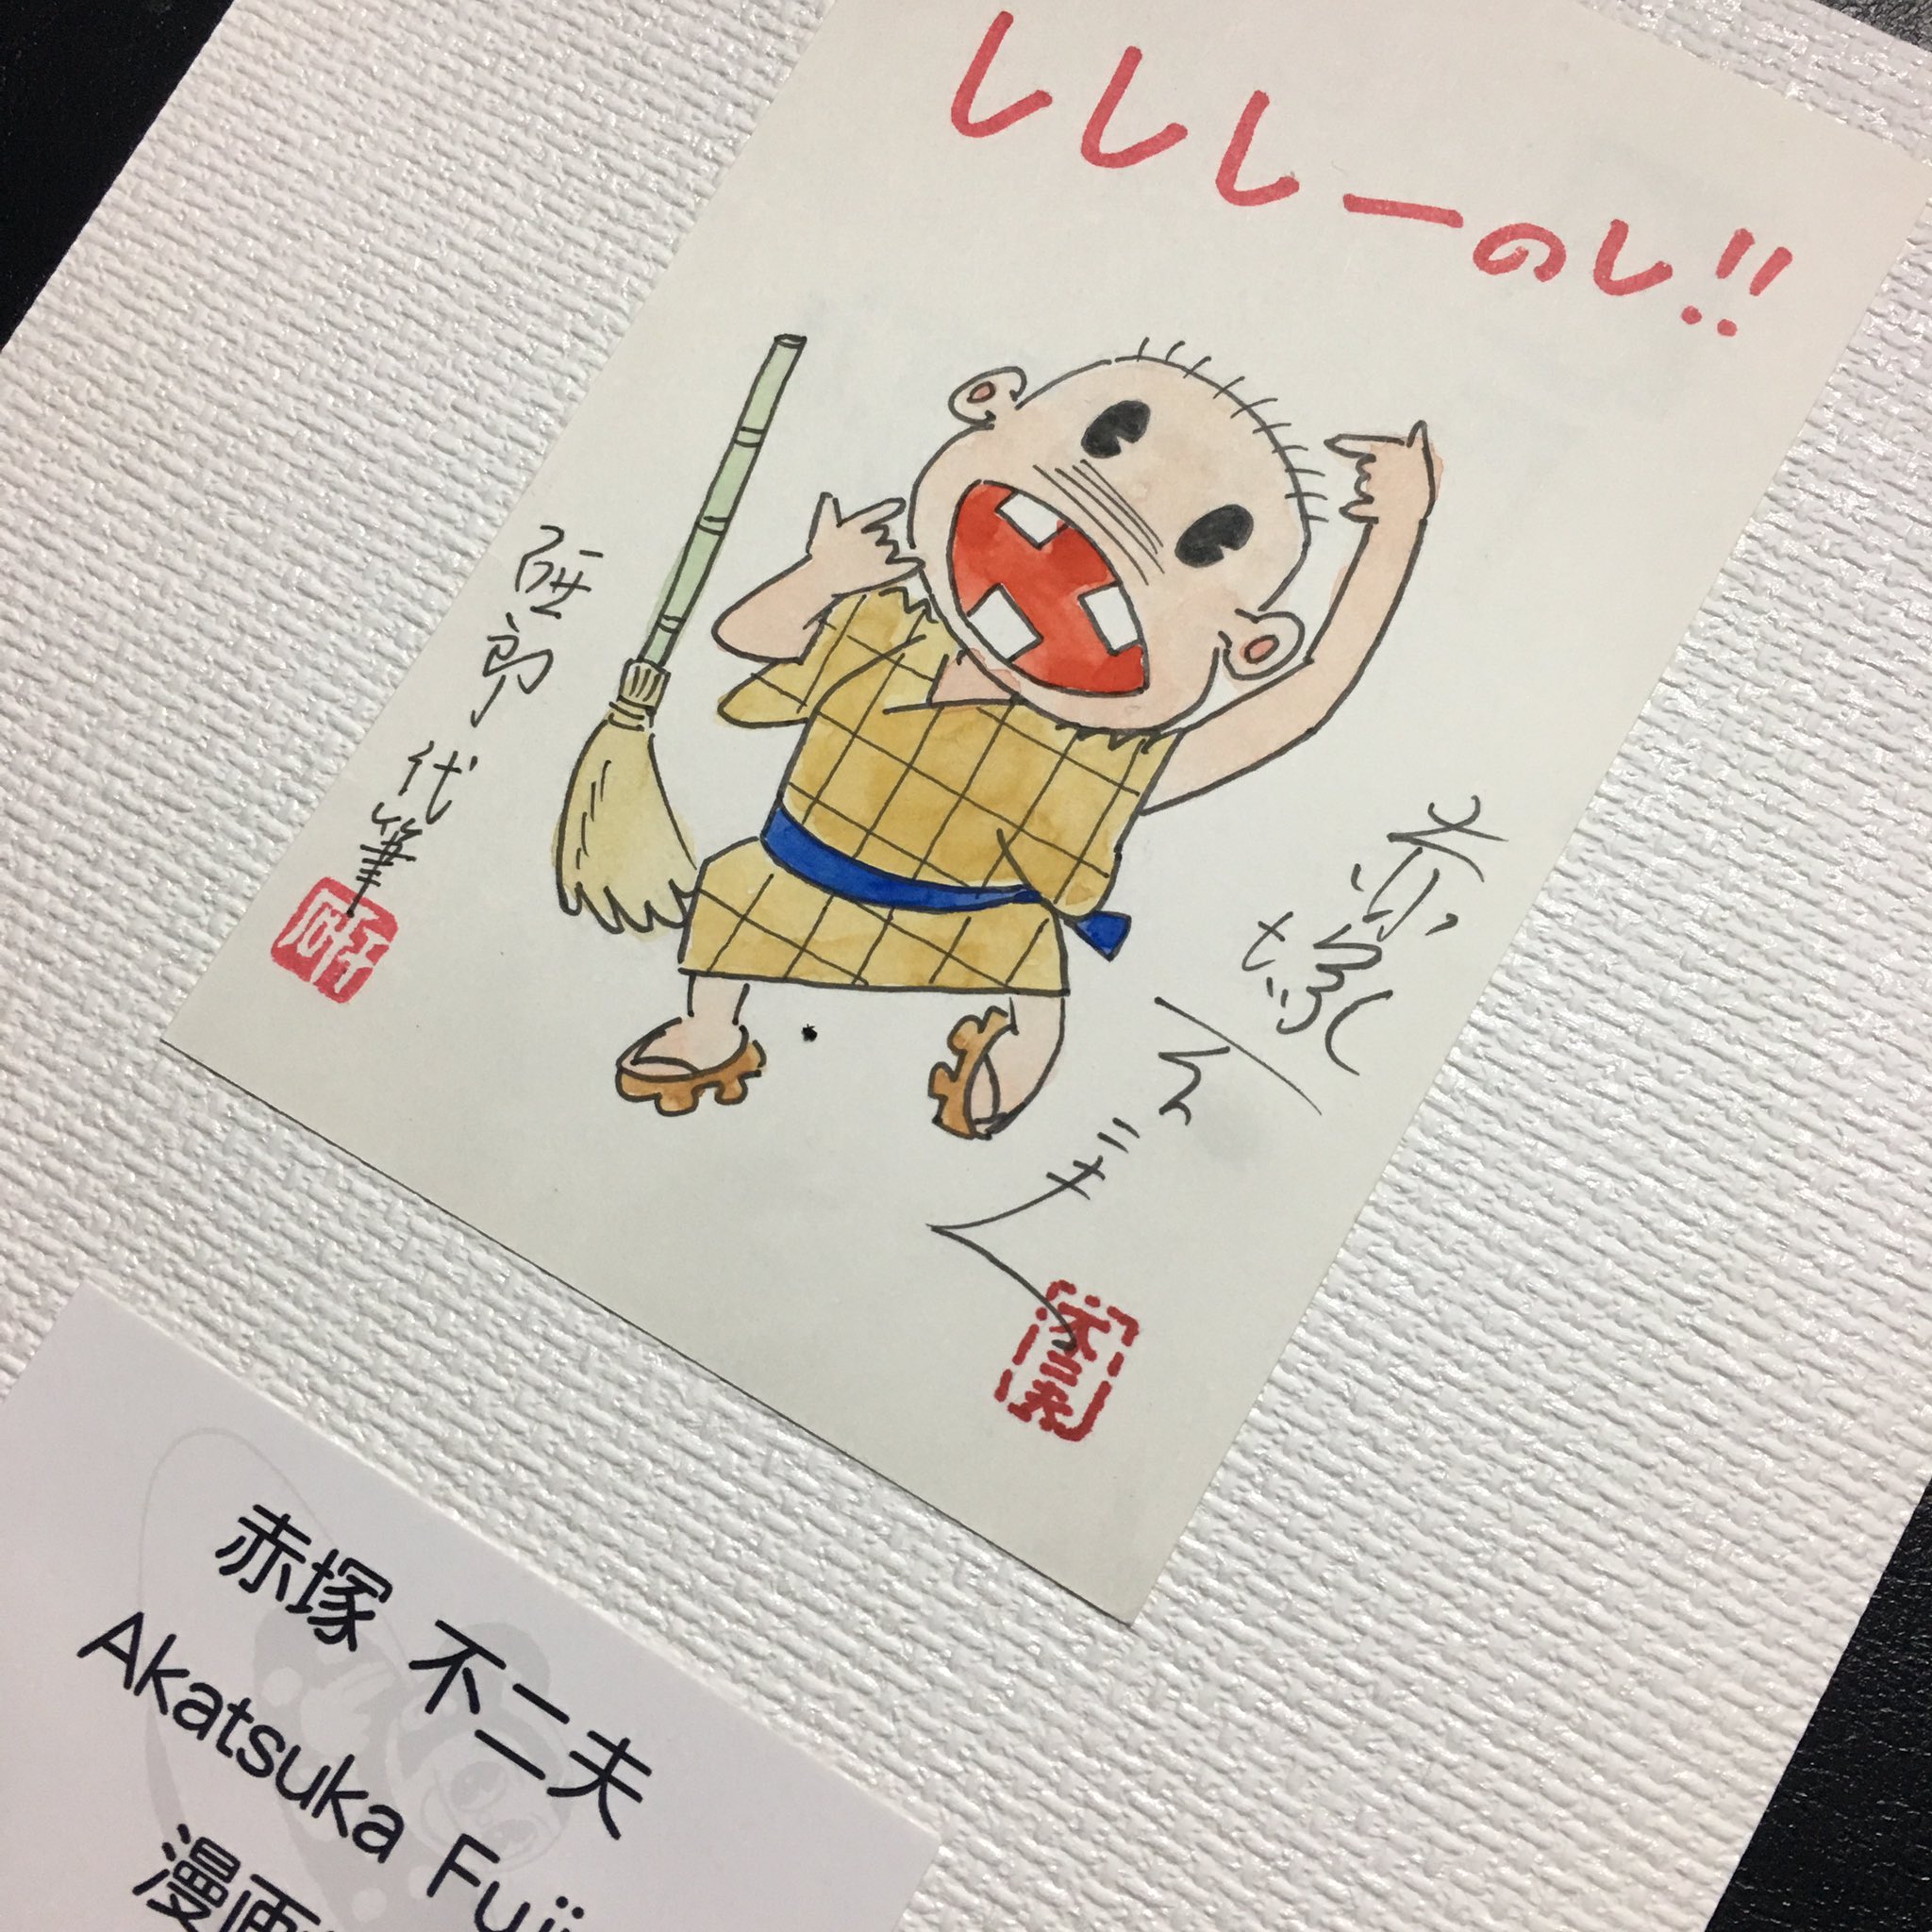 レレレーのレ!!
赤塚不二夫
代筆
赤塚 不二夫
Akatsuka Fuji
漫画